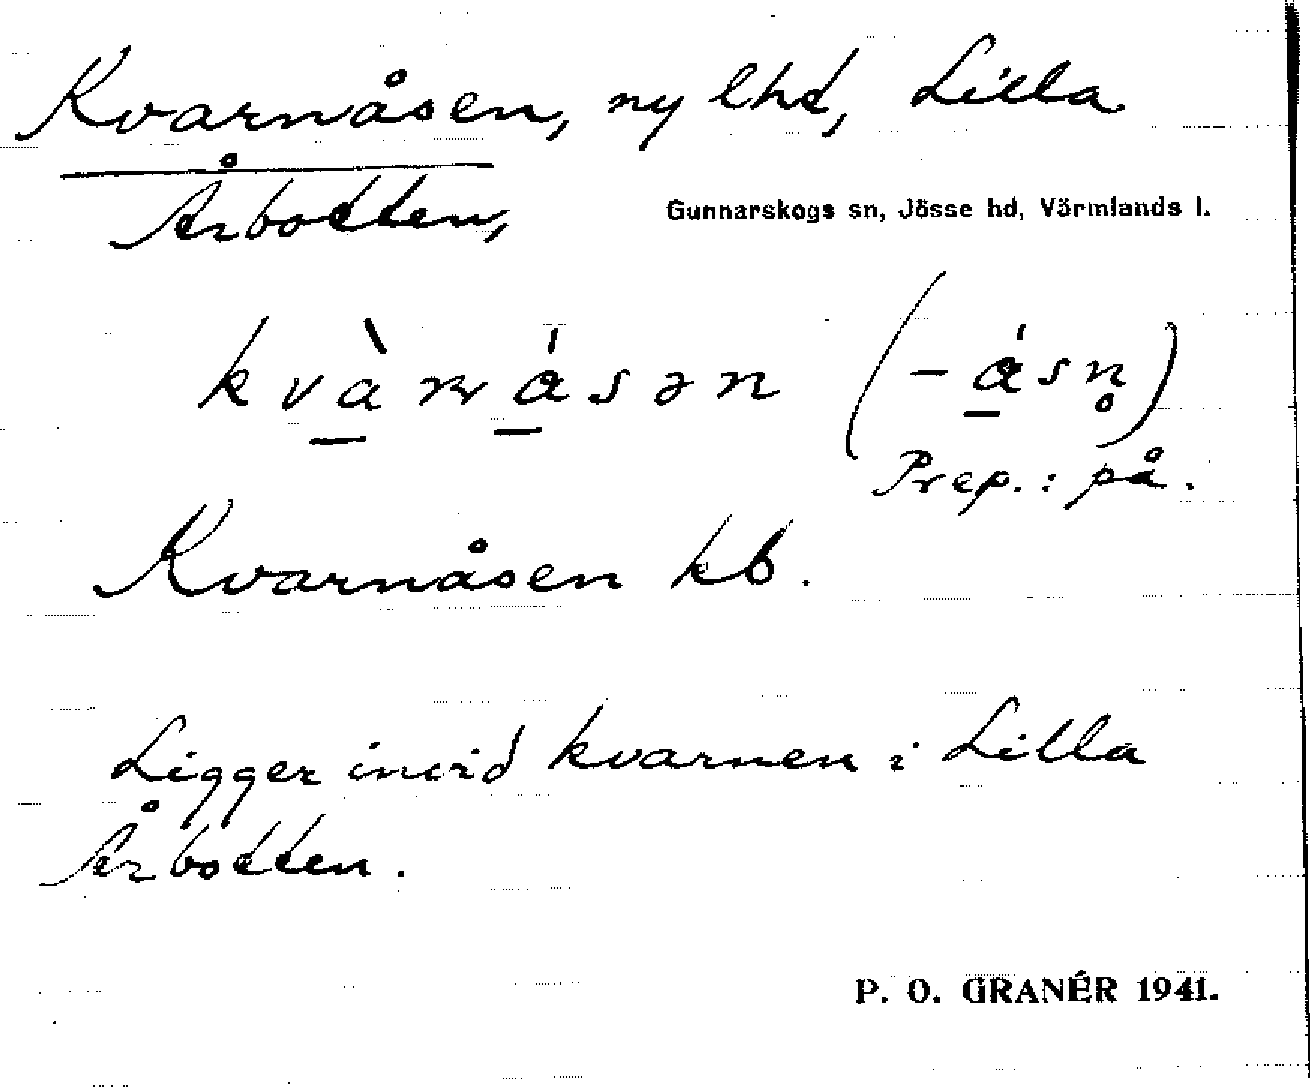 Kvarnåsen, ny lhd, Lilla
Årbotten,
Gunnarskogs sn, Jösse hd, Värmlands l.
Prep.: på.
Kvarnåsen kb.
Ligger invid kvarnen i Lilla
Årbotten.
P. O. GRANÉR 1941.